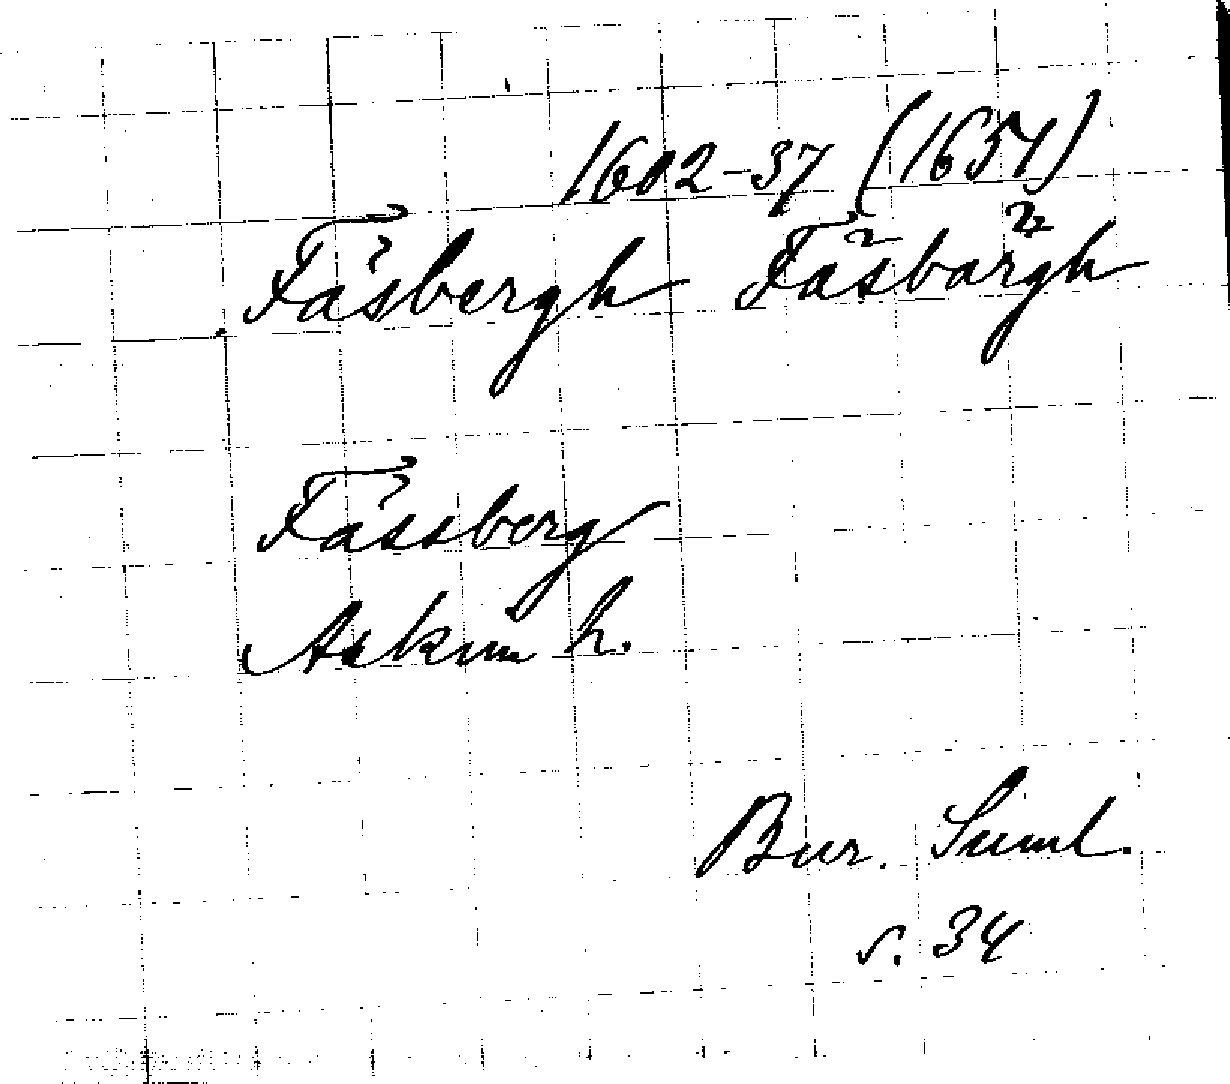 1602-37 (1654)
Fåsbergh Fäsbärgh
Fässberg
Askim h.
Bur. Suml.
s. 34